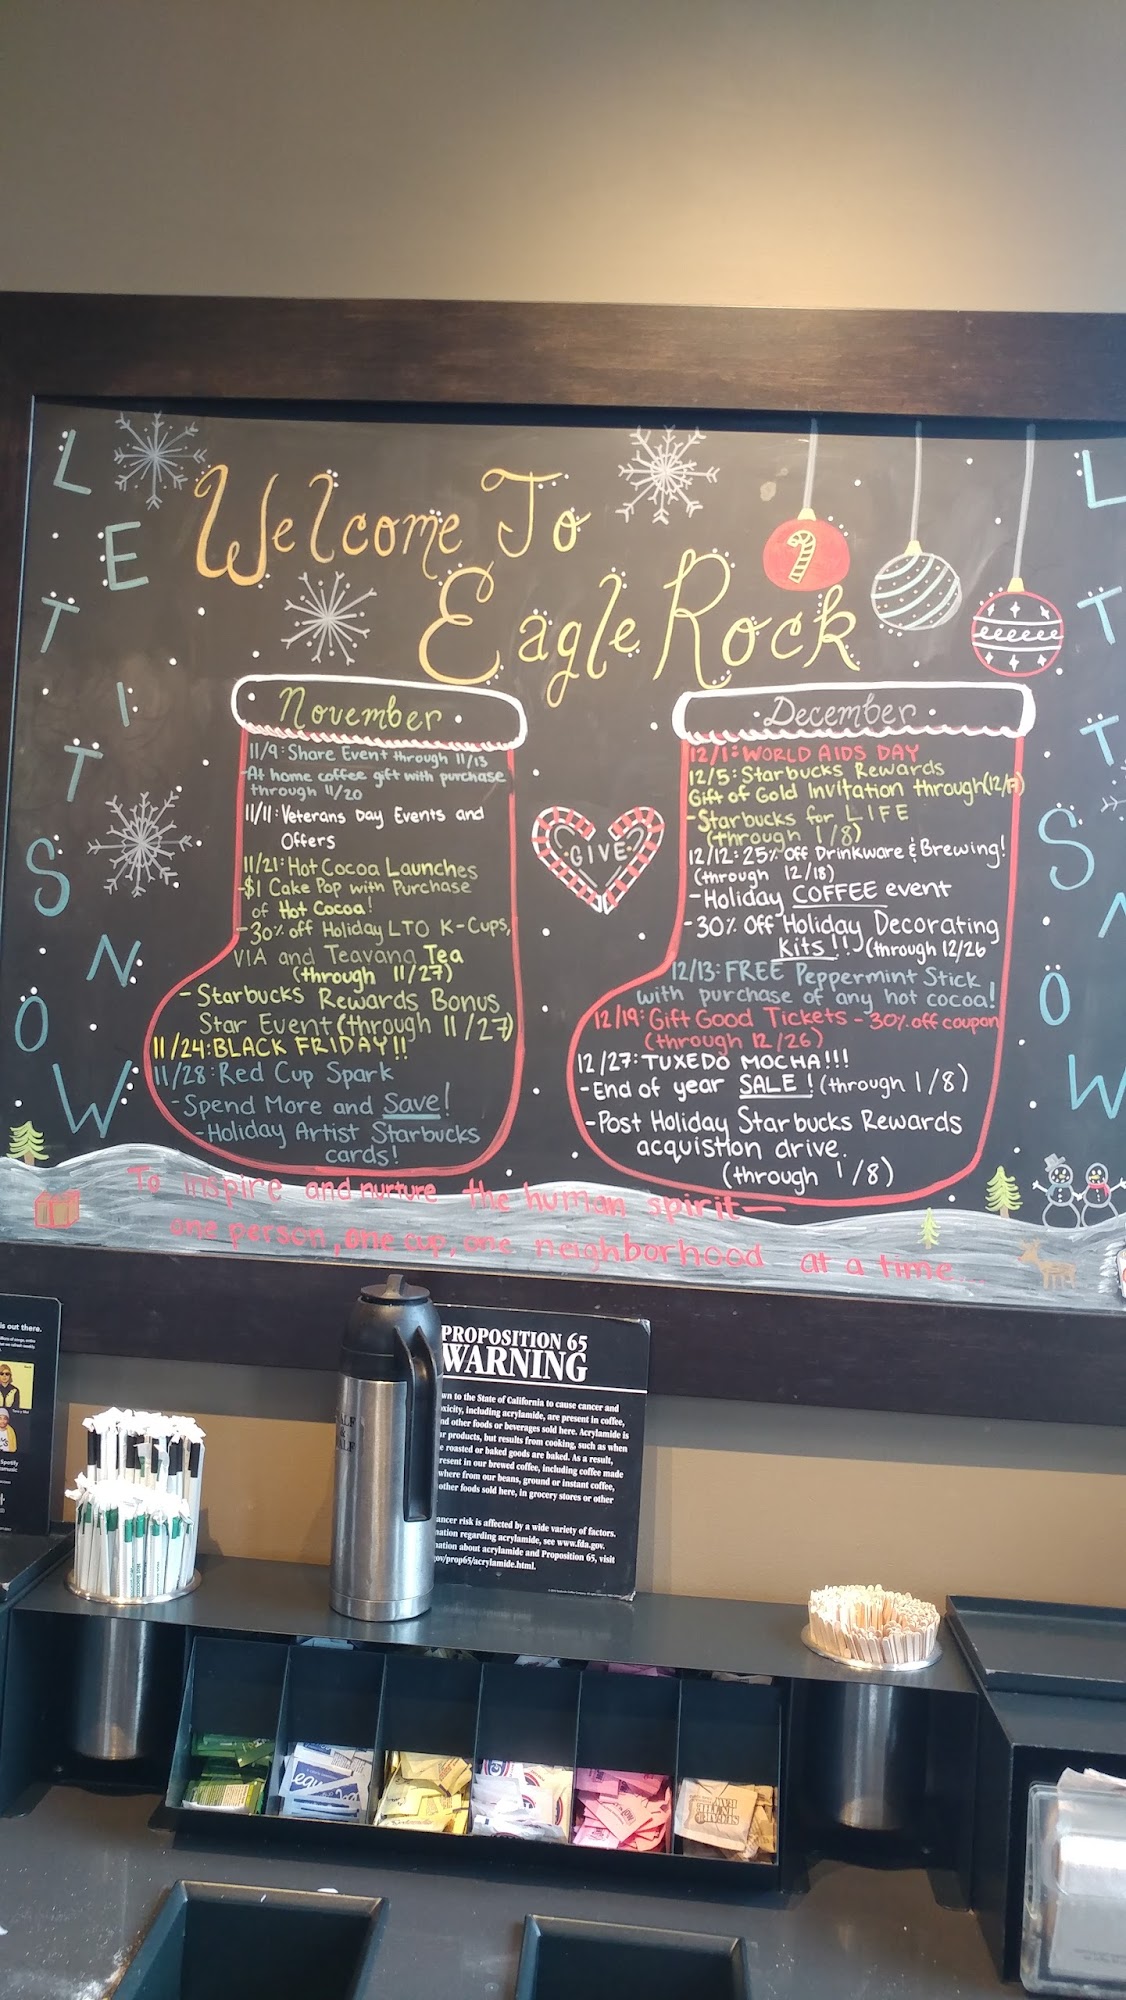 LET IT SNOW
Welcome To
Eagle Rock
November
11/9: Share Event through 11/13
-At home coffee gift with purchase
through 11/20
11/11: Veterans Day Events and
Offers
11/21: Hot Cocoa Launches
-$1 Cake Pop with Purchase
of Hot Cocoa!
-30% off Holiday LTO K-Cups,
VIA and Teavana Tea
(through 11/27)
-Starbucks Rewards Bonus
Star Event (through 11/27)
11/24: BLACK FRIDAY!!
11/28: Red Cup Spark
-Spend More and Save!
-Holiday Artist Starbucks
cards!
GIVE
December
12/1: WORLD AIDS DAY
12/5: Starbucks Rewards
Gift of Gold Invitation through (12/17)
-Starbucks for LIFE
(through 1/8)
12/12: 25% Off Drinkware & Brewing!
(through 12/18)
-Holiday COFFEE event
-30% Off Holiday Decorating
Kits!! (through 12/26
12/13: FREE Peppermint Stick
with purchase of any hot cocoa!
12/19: Gift Good Tickets - 30% off coupon
(through 12/26)
12/27: TUXEDO MOCHA!!!
-End of year SALE! (through 1/8)
-Post Holiday Starbucks Rewards
acquistion drive.
(through 1/8)
L
T
T
S
N
O
W
To inspire and nurture the human spirit—
one person, one cup, one neighborhood at a time...
is out there.
Spotify
PROPOSITION 65
WARNING
wn to the State of California to cause cancer and
oxicity, including acrylamide, are present in coffee,
nd other foods or beverages sold here. Acrylamide is
ur products, but results from cooking, such as when
e roasted or baked goods are baked. As a result,
resent in our brewed coffee, including coffee made
where from our beans, ground or instant coffee,
other foods sold here, in grocery stores or other
ancer risk is affected by a wide variety of factors.
nation regarding acrylamide, see www.fda.gov.
nation about acrylamide and Proposition 65, visit
gov/prop65/acrylamide.html.